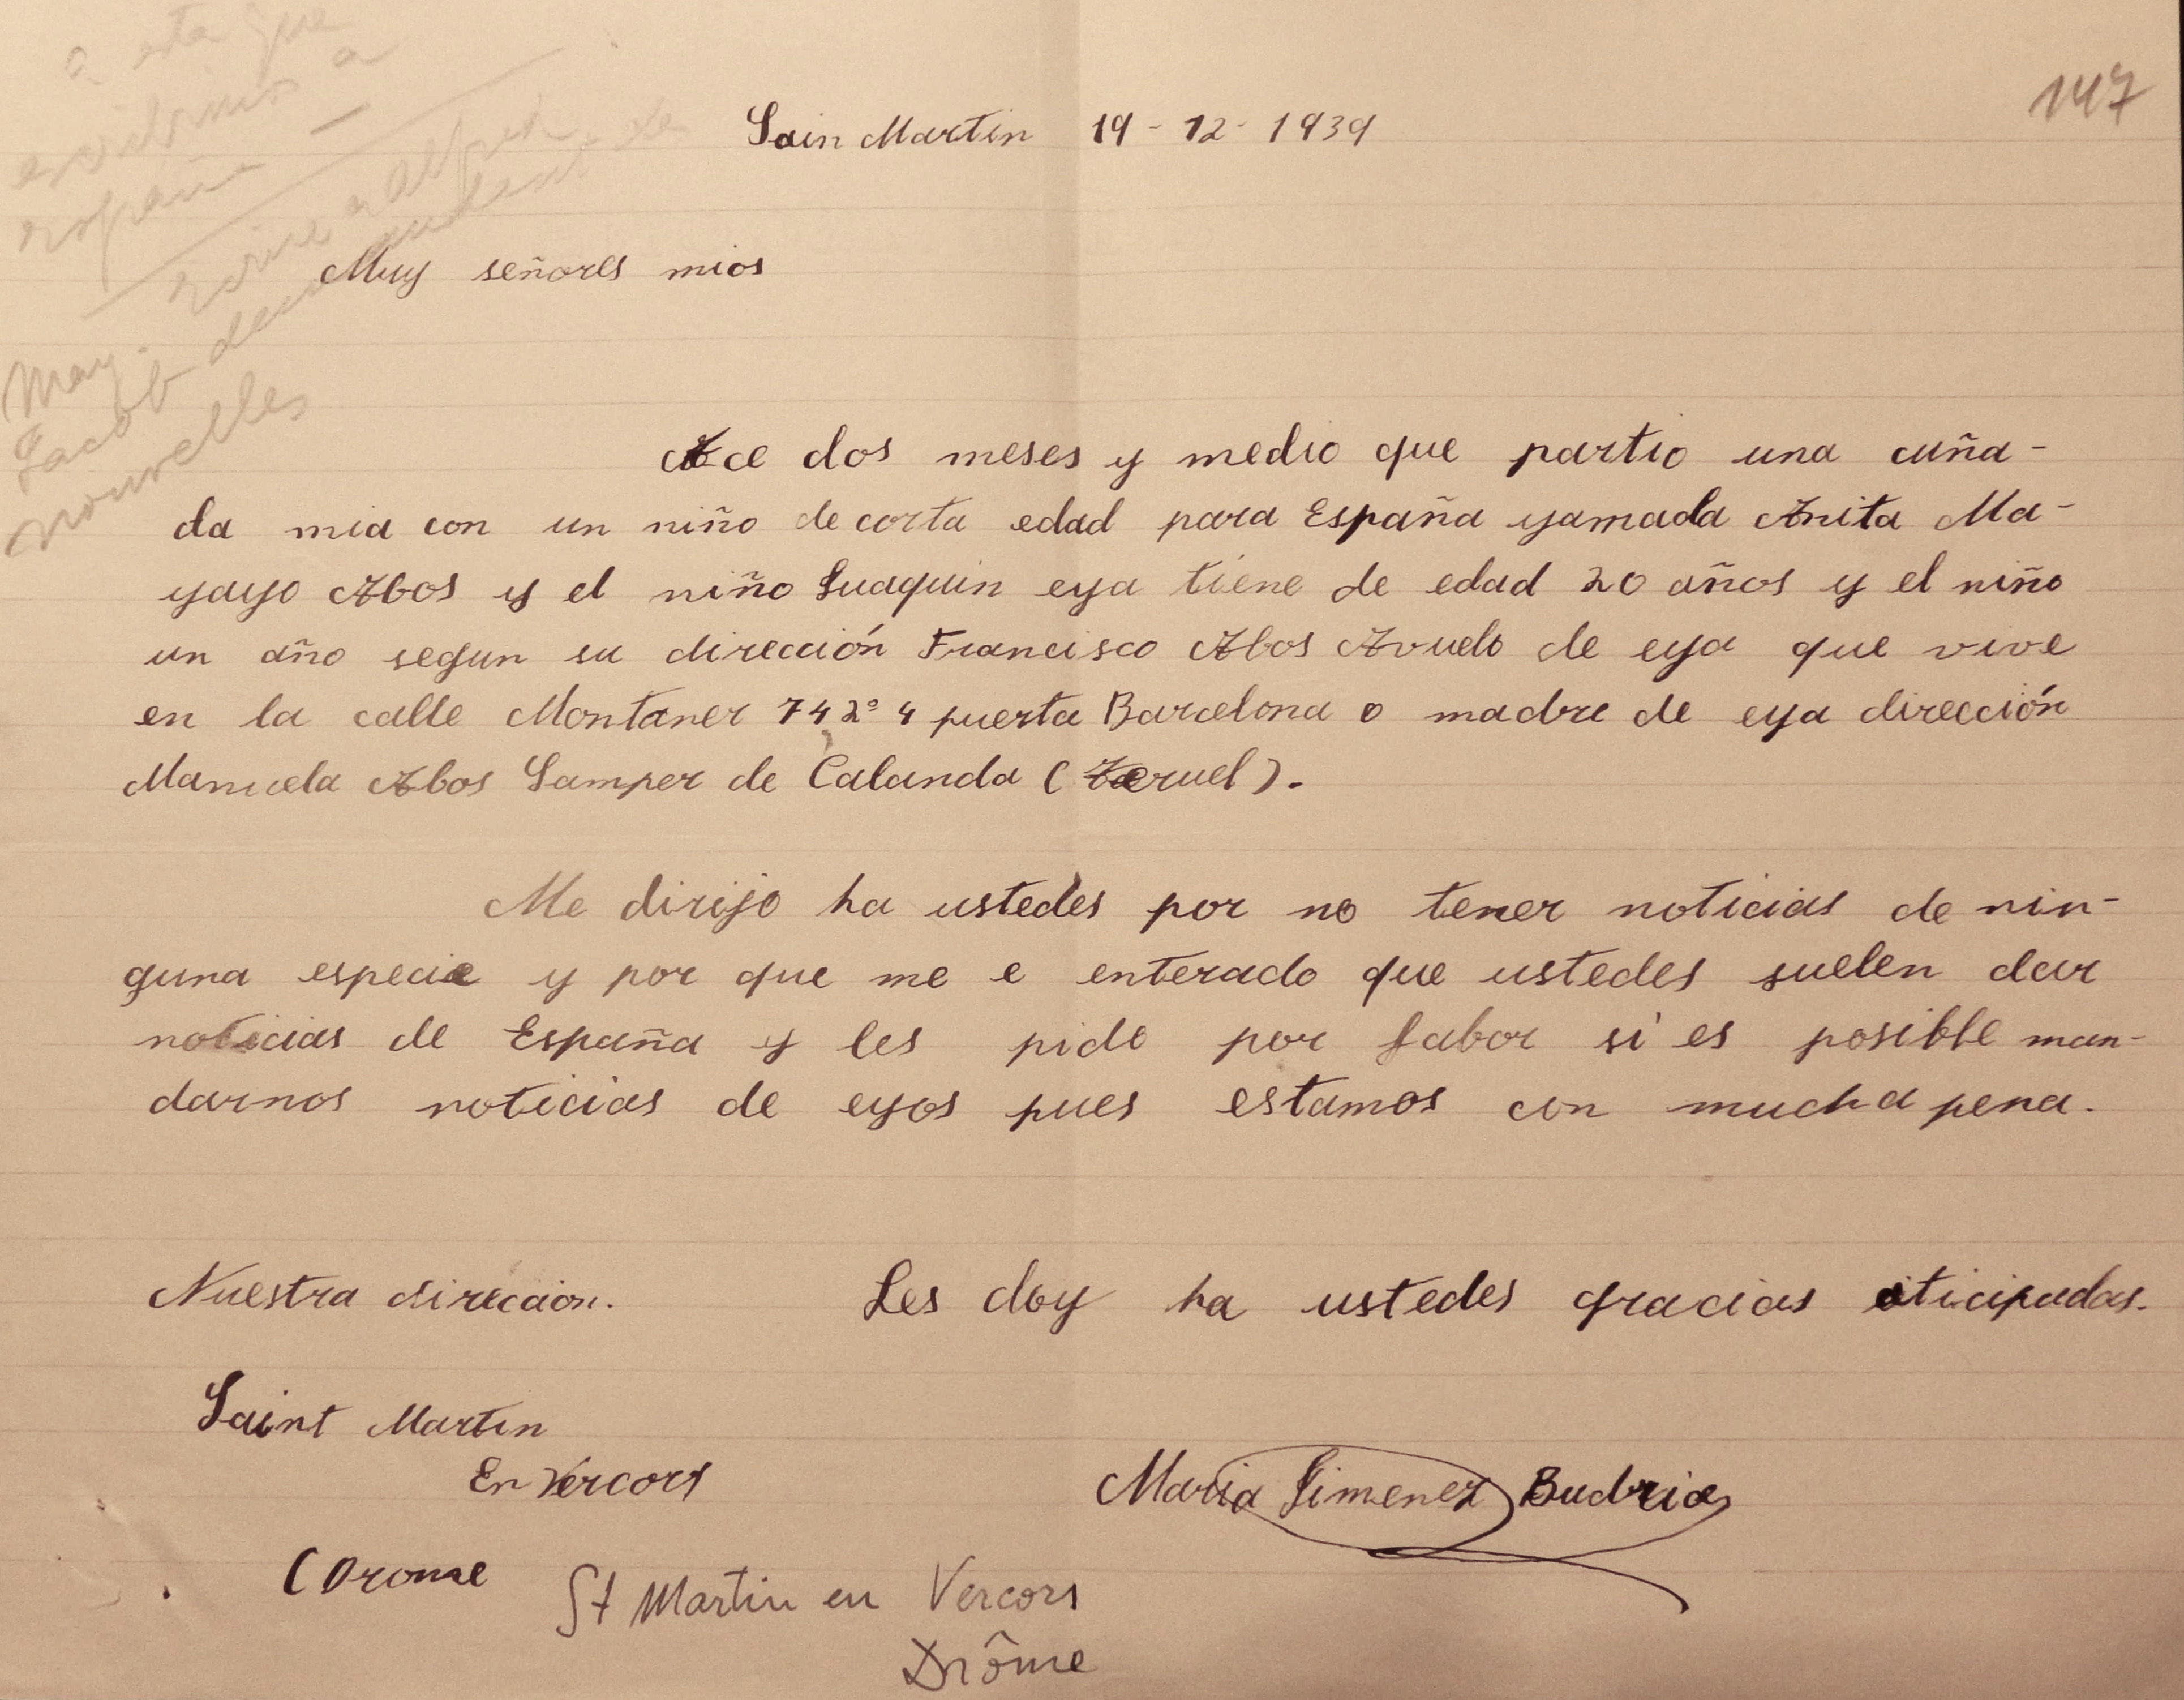 147
Sain Martin 19-12-1939
Muy señores mios
Ace dos meses y medio que partio una cuña-
da mia con un niño de corta edad para España yamada Anita Ma-
yayo Abos y el niño Juaquin eya tiene de edad 20 años y el niño
un año segun su dirección Francisco Abos Avuelo de eya que vive
en la calle Montaner 74 2º 4 puerta Barcelona o madre de eya dirección
Manuela Abos Samper de Calanda (Teruel).-
Me dirijo ha ustedes por no tener noticias de nin-
guna especie y por que me e enterado que ustedes suelen dar
noticias de España y les pido por fabor si es posible man-
darnos noticias de eyos pues estamos con mucha pena.
Nuestra direccion. Les doy ha ustedes gracias aticipadas.
Saint Martin
En Vercors
Maria Jimenez Budria
(Drome
St Martin en Vercors
Drôme
a esta que
a
España
Jacob
nouvelles